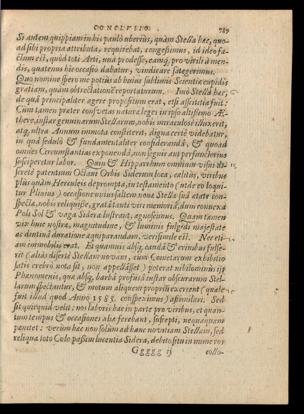 CONCLVSIO. 789
Si autem quippiam in his paulò uberius, quàm Stella hæc, quo-
ad sibi propria attributa, requirebat, congessimus, id ideo fa-
ctum est, quòd toti Arti, unà prodesse, eamq́; pro virili à men-
dis, quatenus hîc occasio dabatur, vindicare sategerimus.
Quo nomine spero me potius ab huius sublimis Scientiæ cupidis
gratiam, quàm obtrectationē reportaturum. Imò Stella hæc,
de quâ principaliter agere propositum erat, etsi asscititia fuit:
Cùm tamen præter consuetas naturæ leges in ipso altissimo Æ-
there, instar geminarum Stellarum, nobis miraculosè illuxerit,
atq; ultra Annum immota constiterit, digna certè videbatur,
in quâ sedulò & fundamentaliter considerandâ, & quoad
omnes Circumstantias exponendâ, non segnis aut perfunctorius
susciperetur labor. Quin & Hipparchus
seretè patentum Octavi Orbis Siderum loca, cælitus, veribus
plus quàm Herculeis deprompta, in testamento (uti de eo loqui-
tur Plinius) occasione unius saltem novæ Stellæ suâ ætate con-
spectæ, nobis reliquisse, gratâ tanti viri memoriâ, dum connexa
Poli Sol & vaga Sidera lustrant, agnoscimus. Quam tamen
vix huic nostræ, magnitudine, & luminis fulgidi majestate
ac diutina duratione æquiparandam, verisimile est. Nec eti-
am immobilis erat. Et quamvis absq; caudâ & crinibus fulse-
rit (aliàs disertè Stellam novam, cùm Cometarum exhibitio
satis crebrò nota sit, non appellâsset) poterat nihilominùs ijs
Phænomenis, quæ absq; barbâ profusâ instar obscurarum Stel-
larum spectantur, & motum aliquem proprium exercent (quale
fuit illud quod Anno 1585. conspeximus) assimilari. Sed
sit quicquid velit: nos labores hac in parte pro viribus, et quan-
tum tempus & occasiones aliæ ferebant, suscepti, nequaquam
pœnitet: verùm hæc non solùm ad hanc novitiam Stellam, sed
reliqua toto Cælo passim lucentia Sidera, debito situ in numeror
Ggggg ij collo-